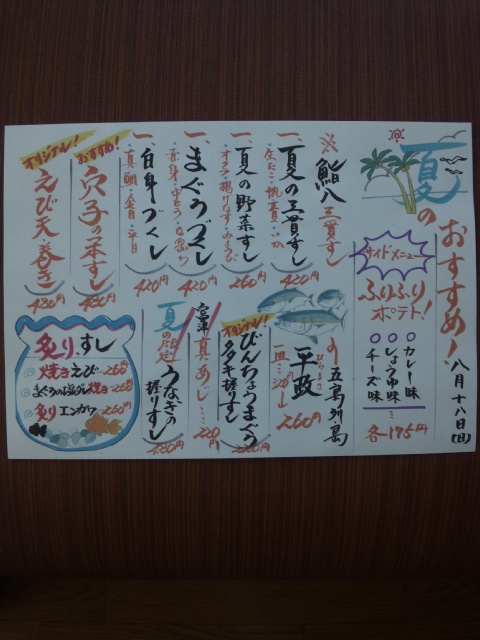 夏のおすすめ!
八月十八日(日)
サイドメニュー
ふりふりポテト!
カレー味
しょうゆ味
チーズ味
各…195円
※鮨八三貫すし
一、夏の三貫すし
生だこ・帆立・いか
420円
一、夏の野菜すし
オクラ・揚りなす・みょうが
260円
一、まぐろづくし
420円
一、白身づくし
真鯛・平目
420円
おすすめ!
穴子の一本すし
480円
オリジナル!
えび天巻き
480円
五島列島の
ひらまさ
平政
一皿…
260円
オリジナル!
びんちょうまぐろ
タタキ握りすし
宮津の
真あじ…
220円
夏の限定
うなぎの握りすし
480円
炙りすし
焼きえび…260円
まぐろのねぎ塩ダレ焼き…260円
炙りエンガワ…260円